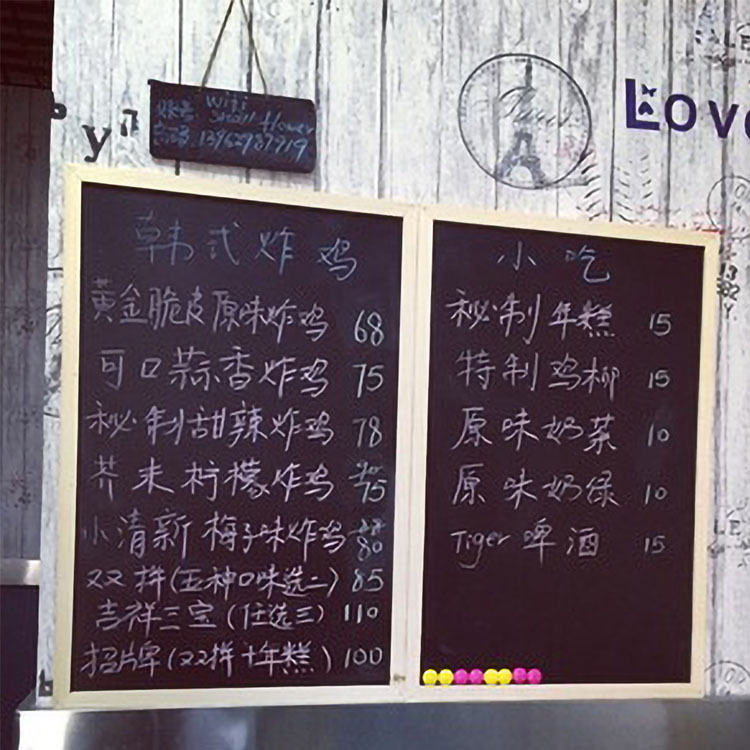 Wifi
账号 small flower
密码 13962987919
LOVE
韩式炸鸡
黄金脆皮原味炸鸡 68
可口蒜香炸鸡 75
秘制甜辣炸鸡 78
芥末柠檬炸鸡 75
小清新梅子味炸鸡 80
双拼(五种口味选二) 85
吉祥三宝(任选三) 110
招牌(双拼+年糕) 100
小吃
秘制年糕 15
特制鸡柳 15
原味奶茶 10
原味奶绿 10
Tiger 啤酒 15